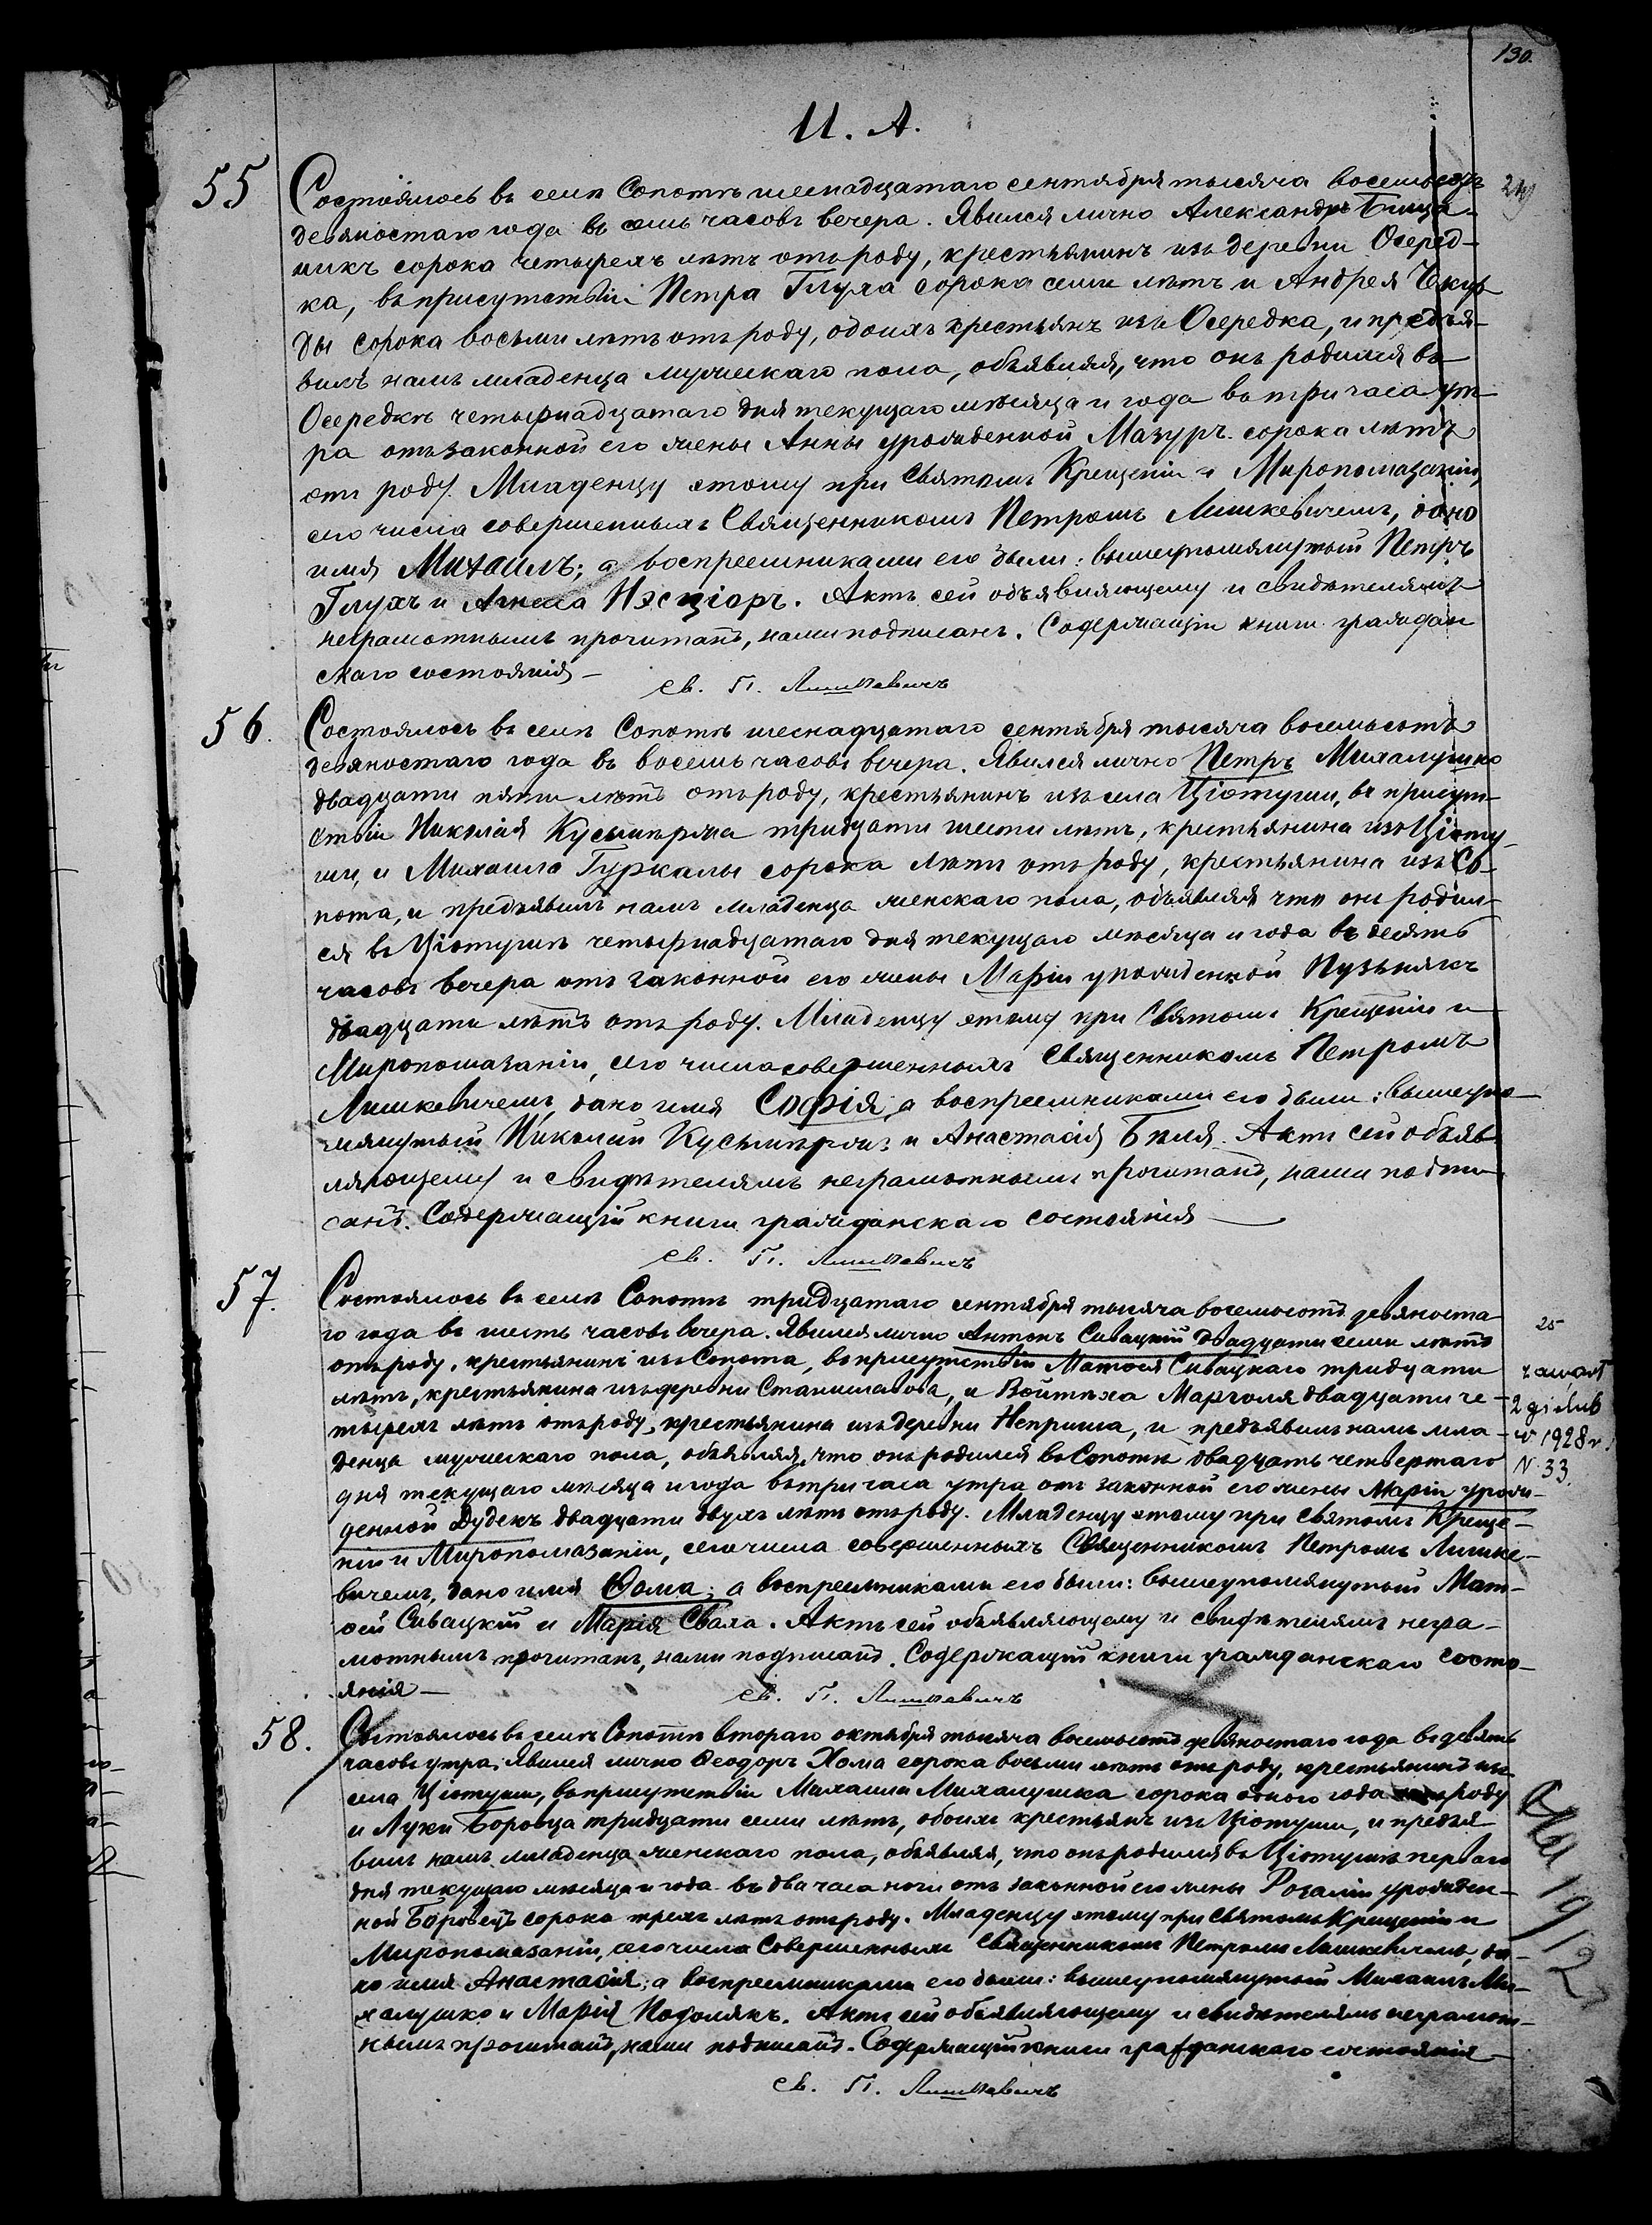 130.
И. А.
55
Состоялось въ селѣ Сопотѣ шеснадцатаго сентября тысяча восемьсотъ
девяностаго года въ семь часовъ вечера. Явился лично Александръ
никъ сорока четырехъ лѣтъ отъ роду, крестьянинъ изъ деревни Осеред-
ка, въ присутствіи Петра Глуха сорока семи лѣтъ и Андрея
ды сорока восьми лѣтъ отъ роду, обоихъ крестьянъ изъ Осередка, и предъя-
вилъ намъ младенца мужескаго пола, объявляя, что онъ родился въ
Осередкѣ четырнадцатаго дня текущаго мѣсяца и года въ три часа ут-
ра отъ законной его жены Анны урожденной Мазуръ сорока лѣтъ
отъ роду. Младенцу этому при Святомъ Крещеніи и Миропомазаніи,
сего числа совершенныхъ Священникомъ Петромъ Лишкевичемъ, дано
имя Михаилъ; а воспреемниками его были: вышеупомянутый Петръ
Глухъ и Агнеса Нэсціоръ. Актъ сей объявляющему и свидѣтелямъ
неграмотнымъ прочитанъ, нами подписанъ. Содержащій книги граждан
скаго состоянія –
св. П. Лишкевичъ
56.
Состоялось въ селѣ Сопотѣ шеснадцатаго сентября тысяча восемьсотъ
девяностаго года въ восемь часовъ вечера. Явился лично Петръ Михалушко
двадцати пяти лѣтъ отъ роду, крестьянинъ изъ села Ціотуши, въ присут-
ствіи Николая Кусьмержа тридцати шести лѣтъ, крестьянина изъ Ціоту
ши, и Михаила Гуркалы сорока лѣтъ отъ роду, крестьянина изъ Со-
пота, и предъявилъ намъ младенца женскаго пола, объявляя что онъ родил-
ся въ Ціотушѣ четырнадцатаго дня текущаго мѣсяца и года въ десять
часовъ вечера отъ законной его жены Маріи урожденной Пузьнякъ
двадцати лѣтъ отъ роду. Младенцу этому при Святомъ Крещеніи и
Миропомазаніи, сего числа совершенныхъ Священникомъ Петромъ
Лишкевичемъ, дано имя Софія, а воспреемниками его были: вышеупо-
мянутый Николай Кусьмержъ и Анастасія Биля. Актъ сей объяв
ляющему и свидѣтелямъ неграмотнымъ прочитанъ, нами подпи
санъ. Содержащій книги гражданскаго состоянія —
св. П. Лишкевичъ
57.
Состоялось въ селѣ Сопотѣ тридцатаго сентября тысяча восемьсотъ девяноста-
го года въ шесть часовъ вечера. Явился лично Антонъ Сивацкій двадцати семи лѣтъ
отъ роду, крестьянинъ изъ Сопота, въ присутствіи Матѳея Сивацкаго тридцати
лѣтъ, крестьянина изъ деревни Станиславова, и Войтѣха Марголя двадцати че-
тырехъ лѣтъ отъ роду, крестьянина изъ деревни Неприша, и предъявилъ намъ мла-
денца мужескаго пола, объявляя, что онъ родился въ Сопотѣ двадцать четвертаго
дня текущаго мѣсяца и года въ три часа утра отъ законной его жены Маріи урож-
денной Дудекъ двадцати двухъ лѣтъ отъ роду. Младенцу этому при Святомъ Креще-
ніи и Миропомазаніи, сего числа совершенныхъ Священникомъ Петромъ Лишке-
вичемъ, дано имя Ѳома; а воспреемниками его были: вышеупомянутый Мат-
ѳей Сивацкій и Марія Свала. Актъ сей объявляющему и свидѣтелямъ негра-
мотнымъ прочитанъ, нами подписанъ. Содержащій книги гражданскаго состо-
янія –
25
zawarł
2gi ślub
w 1928 r.
N. 33.
св. П. Лишкевичъ
58.
Состоялось въ селѣ Сопотѣ втораго октября тысяча восемьсотъ девяностаго года въ девять
часовъ утра. Явился лично Ѳеодоръ Хома сорока восьми лѣтъ отъ роду, крестьянинъ изъ
села Ціотуши, въ присутствіи Михаила Михалушка сорока одного года роду
и Луки Боровца тридцати семи лѣтъ, обоихъ крестьянъ изъ Ціотуши, и предъя
вилъ намъ младенца женскаго пола, объявляя, что онъ родился въ Ціотушѣ перваго
дня текущаго мѣсяца и года въ два часа ночи отъ законной его жены Розаліи урожден-
ной Боровецъ сорока трехъ лѣтъ отъ роду. Младенцу этому при Святомъ Крещеніи и
Миропомазаніи, сего числа совершенныхъ Священникомъ Петромъ Лишкевичемъ, да-
но имя Анастасія; а воспреемниками его были: вышеупомянутый Михаилъ Ми-
халушко и Марія Подолякъ. Актъ сей объявляющему и свидѣтелямъ неграмот-
нымъ прочитанъ, нами подписанъ. Содержащій книги гражданскаго состоянія –
1912
св. П. Лишкевичъ